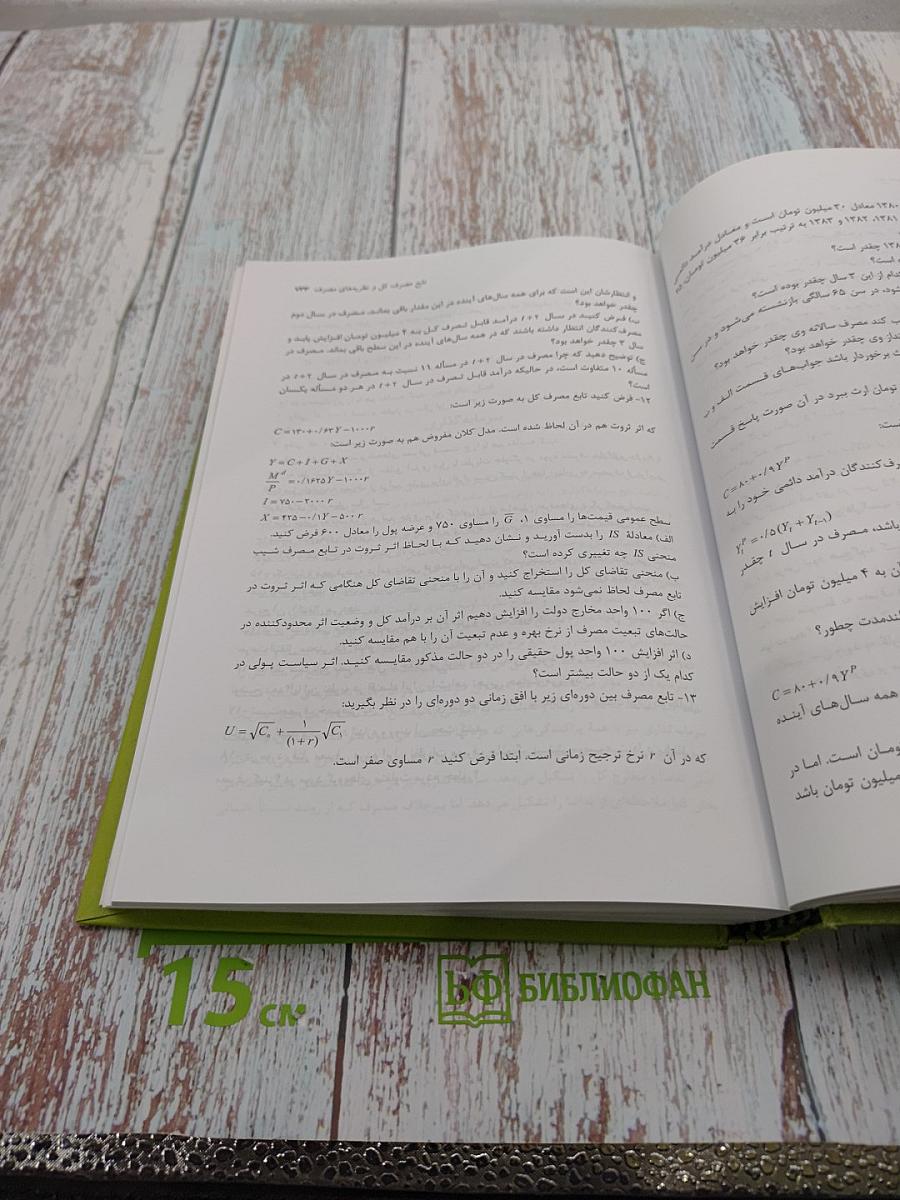 تابع مصرف کل و نظریه‌های مصرف ۷۳۳
و انتظارشان این است که برای همه سال‌های آینده در این مقدار باقی بماند. مصرف در سال دوم
چقدر خواهد بود؟
ب) فرض کنید در سال t+۲ درآمد قابل تصرف کل به ۴ میلیون تومان افزایش یابد و
مصرف‌کنندگان انتظار داشته باشند که در همه سال‌های آینده در این سطح باقی بماند. مصرف در
سال ۳ چقدر خواهد بود؟
ج) توضیح دهید که چرا مصرف در سال t+۲ در مسأله ۱۱ نسبت به مصرف در سال t+۲ در
مسأله ۱۰ متفاوت است، در حالیکه درآمد قابل تصرف در سال t+۲ در هر دو مسأله یکسان
است؟
۱۲- فرض کنید تابع مصرف کل به صورت زیر است:
C=۱۳۰+۰/۶۳Y-۱۰۰۰r
که اثر ثروت هم در آن لحاظ شده است. مدل کلان مفروض هم به صورت زیر است:
Y=C+I+G+X
M^d/P=۰/۱۶۲۵Y-۱۰۰۰r
I=۷۵۰-۲۰۰۰r
X=۴۲۵-۰/۱Y-۵۰۰r
سطح عمومی قیمت‌ها را مساوی ۱، G̅ را مساوی ۷۵۰ و عرضه پول را معادل ۶۰۰ فرض کنید.
الف) معادلهٔ IS را بدست آورید و نشان دهید که با لحاظ اثر ثروت در تابع مصرف شیب
منحنی IS چه تغییری کرده است؟
ب) منحنی تقاضای کل را استخراج کنید و آن را با منحنی تقاضای کل هنگامی که اثر ثروت در
تابع مصرف لحاظ نمی‌شود مقایسه کنید.
ج) اگر ۱۰۰ واحد مخارج دولت را افزایش دهیم اثر آن بر درآمد کل و وضعیت اثر محدودکننده در
حالت‌های تبعیت مصرف از نرخ بهره و عدم تبعیت آن را با هم مقایسه کنید.
د) اثر افزایش ۱۰۰ واحد پول حقیقی را در دو حالت مذکور مقایسه کنید. اثر سیاست پولی در
کدام یک از دو حالت بیشتر است؟
۱۳- تابع مصرف بین دوره‌ای زیر با افق زمانی دو دوره‌ای را در نظر بگیرید:
U=√C₀+۱/(۱+r)√C₁
که در آن r نرخ ترجیح زمانی است. ابتدا فرض کنید r مساوی صفر است.
۱۳۸۰ معادل ۳۰ میلیون تومان است و معادل درآمد دائمی
۱۳۸۱، ۱۳۸۲ و ۱۳۸۳ به ترتیب برابر ۳۶ میلیون تومان،
چقدر است؟
است؟
کدام از این ۳ سال چقدر بوده است؟
شود، در سن ۶۵ سالگی بازنشسته می‌شود و در سن
کند مصرف سالانه وی چقدر خواهد بود؟
انداز وی چقدر خواهد بود؟
برخوردار باشد جواب‌های قسمت الف و ب
تومان ارث ببرد در آن صورت پاسخ قسمت
است:
C=۸۰+۰/۹Y^P
مصرف‌کنندگان درآمد دائمی خود را به
Y_t^P=۰/۵(Y_t+Y_{t-1})
باشد، مصرف در سال t چقدر
آن به ۴ میلیون تومان افزایش
بلندمدت چطور؟
C=۸۰+۰/۹Y^P
همه سال‌های آینده
تومان است. اما در
میلیون تومان باشد
15 см
БФ БИБЛИОФАН